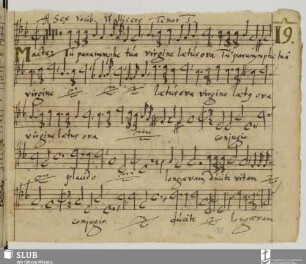 Sex vocib. Tenor I. 19.
Macte Tu paranymphe tua virgine laetus ova Tu paranymphe tua
virgine laetus ova virgine laetus ova
virgine laetus ova conjugio
placido longaevam ducite vitam
conjugio ducite longaevam
SLUB
Wir führen Wissen.